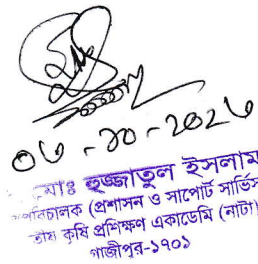 ০৬-১০-২০২৬
মোঃ হুজ্জাতুল ইসলাম
উপপরিচালক (প্রশাসন ও সাপোর্ট সার্ভিস
জাতীয় কৃষি প্রশিক্ষণ একাডেমি (নাটা)
গাজীপুর-১৭০১